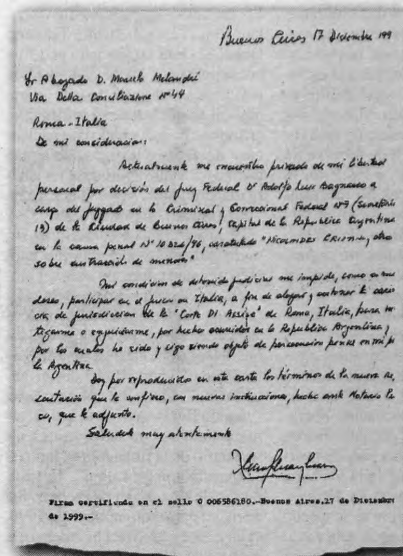 Buenos Aires 17 Diciembre 199
Sr Abogado D. Marcelo Melandri
Via Della Conciliazione Nº 44
Roma - Italia
De mi consideracion:
Actualmente me encuentro privado de mi libertad
personal por decisión del Juez Federal Dr Adolfo Luis Bagnasco a
cargo del Juzgado en lo Criminal y Correccional Federal Nº 7 (Secretaría
13) de la Ciudad de Buenos Aires, Capital de la Republica Argentina
en la causa penal Nº 10.326/96, caratulada "NICOLAIDES CRISTINO, otro
sobre sustracción de menores"
Mi condición de detenido judicial me impide, como es mi
deseo, participar en el juicio en Italia, a fin de alegar y sostener la caren
cia de jurisdiccion de la "Corte Di Assise" de Roma, Italia, para in
vestigarme o enjuiciarme, por hechos ocurridos en la Republica Argentina,
por los cuales he sido y sigo siendo objeto de persecucion penal en mi pa
la Argentina.
Doy por reproducidos en esta carta los términos de la nueva re
sentación que le confiero, con nuevas instrucciones, hecha ante Notario Pú
co, que le adjunto.
Saludole muy atentamente
Firma certificada en el sello O 006586180.-Buenos Aires,17 de Diciembre
de 1999.-